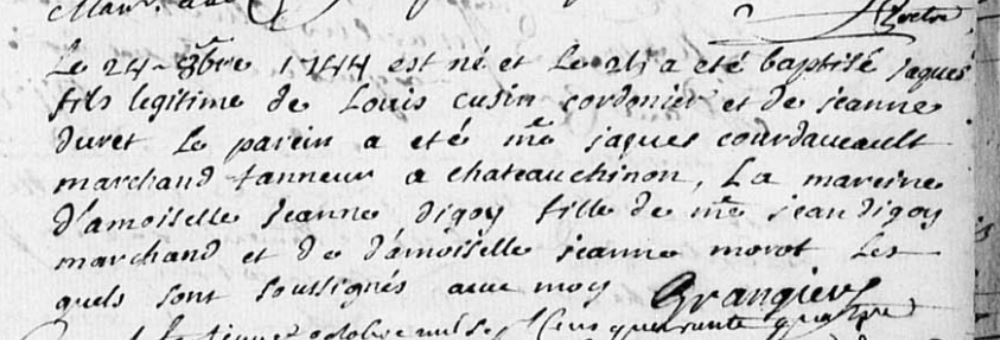 Le 24 - 8bre 1744 est né et le 25 a eté baptisé jaques
fils legitime de Louis cusin cordonier et de jeanne
duret Le parein a eté me jaques courdaveault
marchand tanneur a chateauchinon, La mareine
d'amoiselle jeanne digoy fille de me jean digoy
marchand et de d'amoiselle jeanne morot les
quels sont soussignés avec moy Grangier
octobre mil sept cens quarante quatre